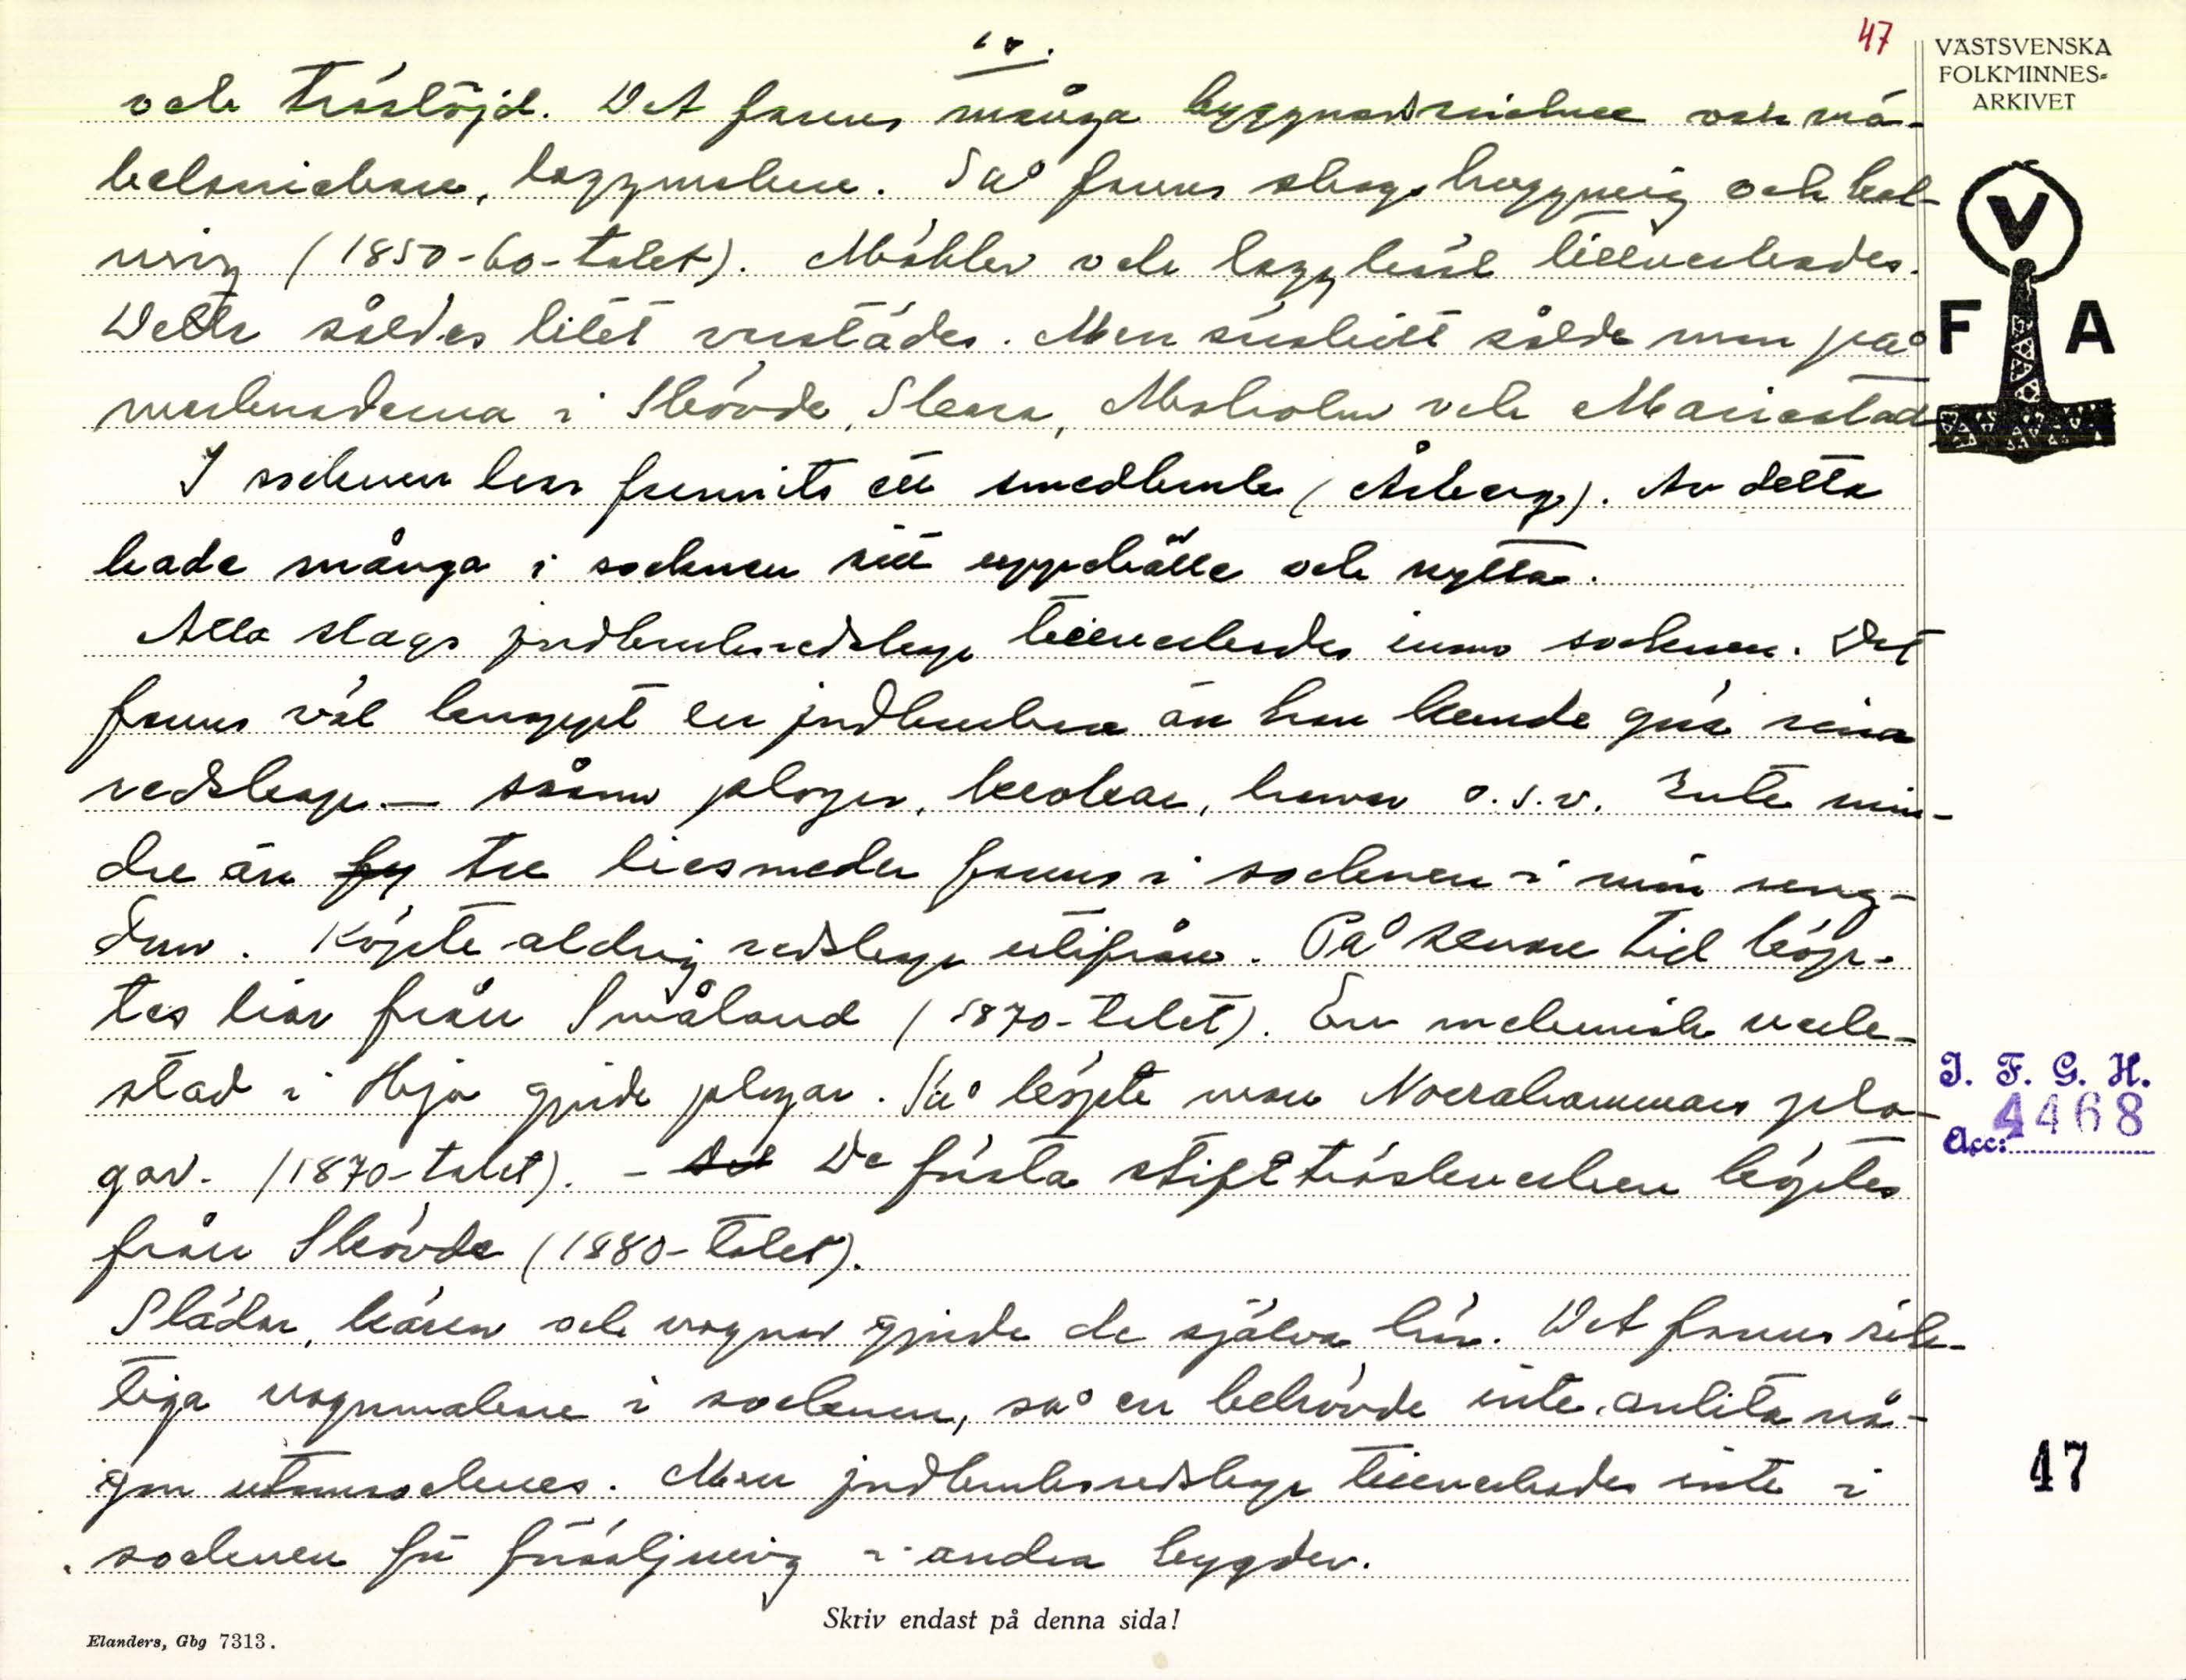 47
10.
VÄSTSVENSKA
FOLKMINNES-
ARKIVET
och träslöjd. Det fanns många byggnadssnickare och mö-
belsnickare, laggmakare. Så fanns skogshuggning och kol-
ning (1850-60-talet). Möbler och laggkärl tillverkades.
Detta såldes litet varstädes. Men särskilt sålde man på
marknaderna i Skövde, Skara, Moholm och Mariestad
V
F A
I socknen har funnits ett smedbruk (Åsberg). Av detta
hade många i socknen sitt uppehälle och nytta.
Alla slags jordbruksredskap tillverkades inom socknen. Det
fanns väl knappt en jordbrukare än han kunde göra sina
redskap – såsom plogar, krokar, harvar o.s.v. Inte min-
dre än fy tre liesmeder fanns i socknen i min ung-
dom. Köpte aldrig redskap utifrån. På senare tid köp-
tes liar från Småland (1870-talet). En mekanisk verk-
stad i Hjo gjorde plogar. Så köpte man Norrahammars plo-
gar. (1870-talet). - De första stifttröskverken köptes
från Skövde (1880-talet).
Slädar, kärror och vagnar gjorde de själva här. Det fanns rik-
tiga vagnmakare i socknen, så en behövde inte anlita nå-
gon utomsocknes. Men jordbruksredskap tillverkades inte i
socknen för försäljning i andra bygder.
I. F. G. H.
Acc: 4468
47
Skriv endast på denna sida!
Elanders, Gbg 7313.